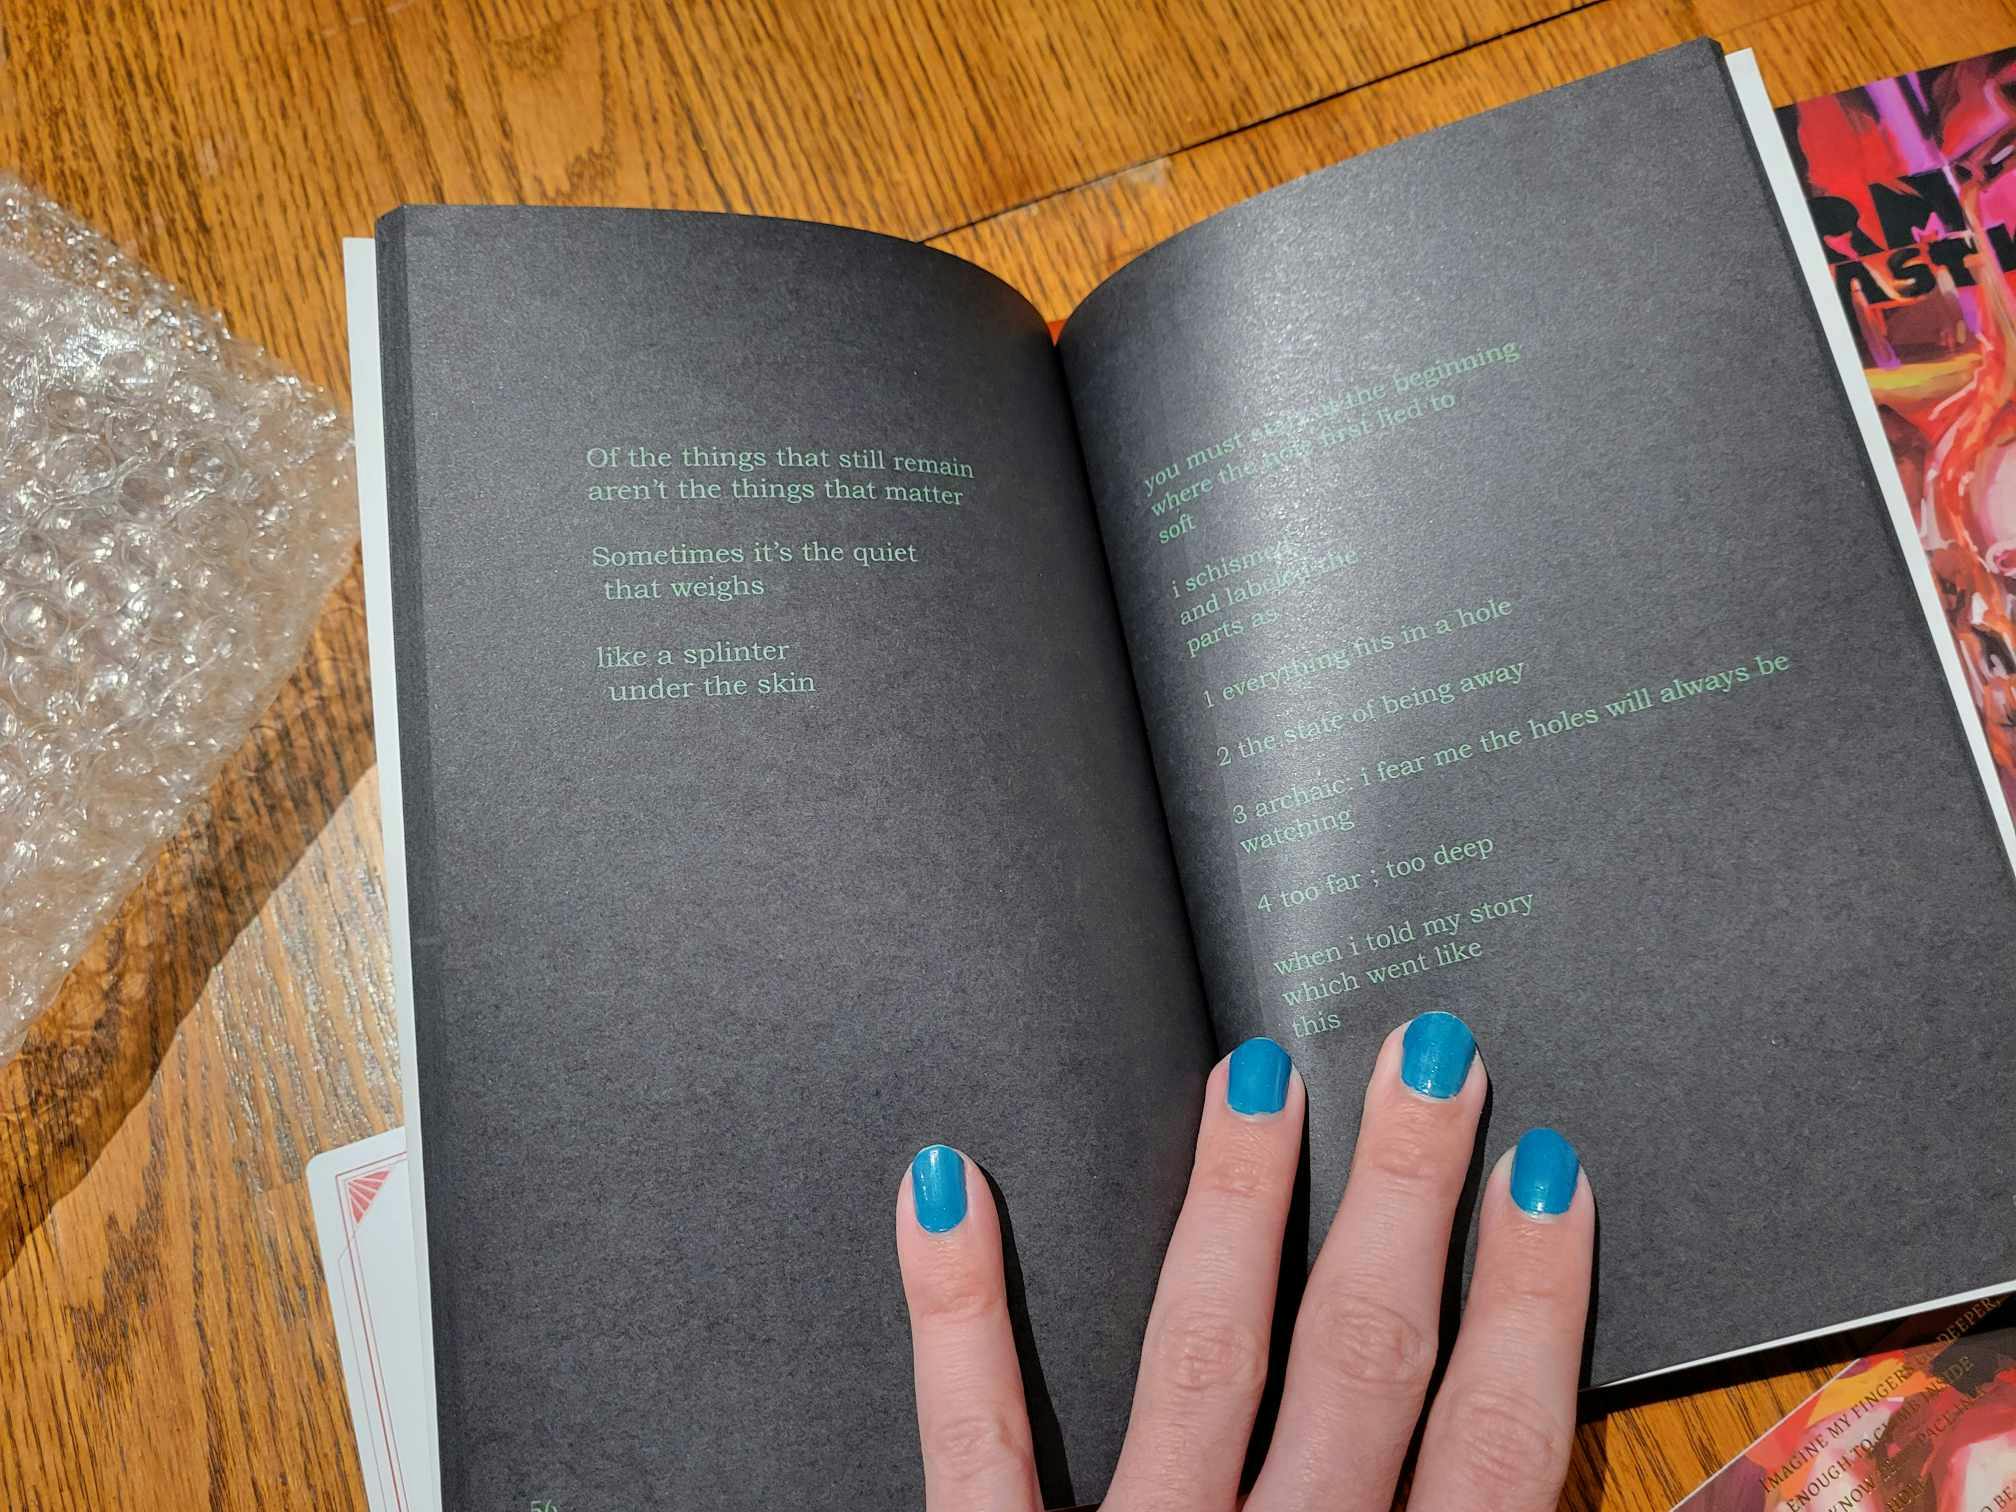 Of the things that still remain
aren't the things that matter
Sometimes it's the quiet
that weighs
like a splinter
under the skin
56
you must start at the beginning
where the hole first lied to
soft
i schismed
and labeled the
parts as
1 everything fits in a hole
2 the state of being away
3 archaic: i fear me the holes will always be
watching
4 too far ; too deep
when i told my story
which went like
this
RN
AST
IMAGINE MY FINGERS DEEPER,
ENOUGH TO CLIMB INSIDE
KNOW SPACE IN